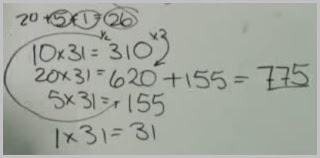 20 + 5 + 1 = 26
½ ×2
10×31 = 310
20×31 = 620 + 155 = 775
5×31 = 155
1×31 = 31